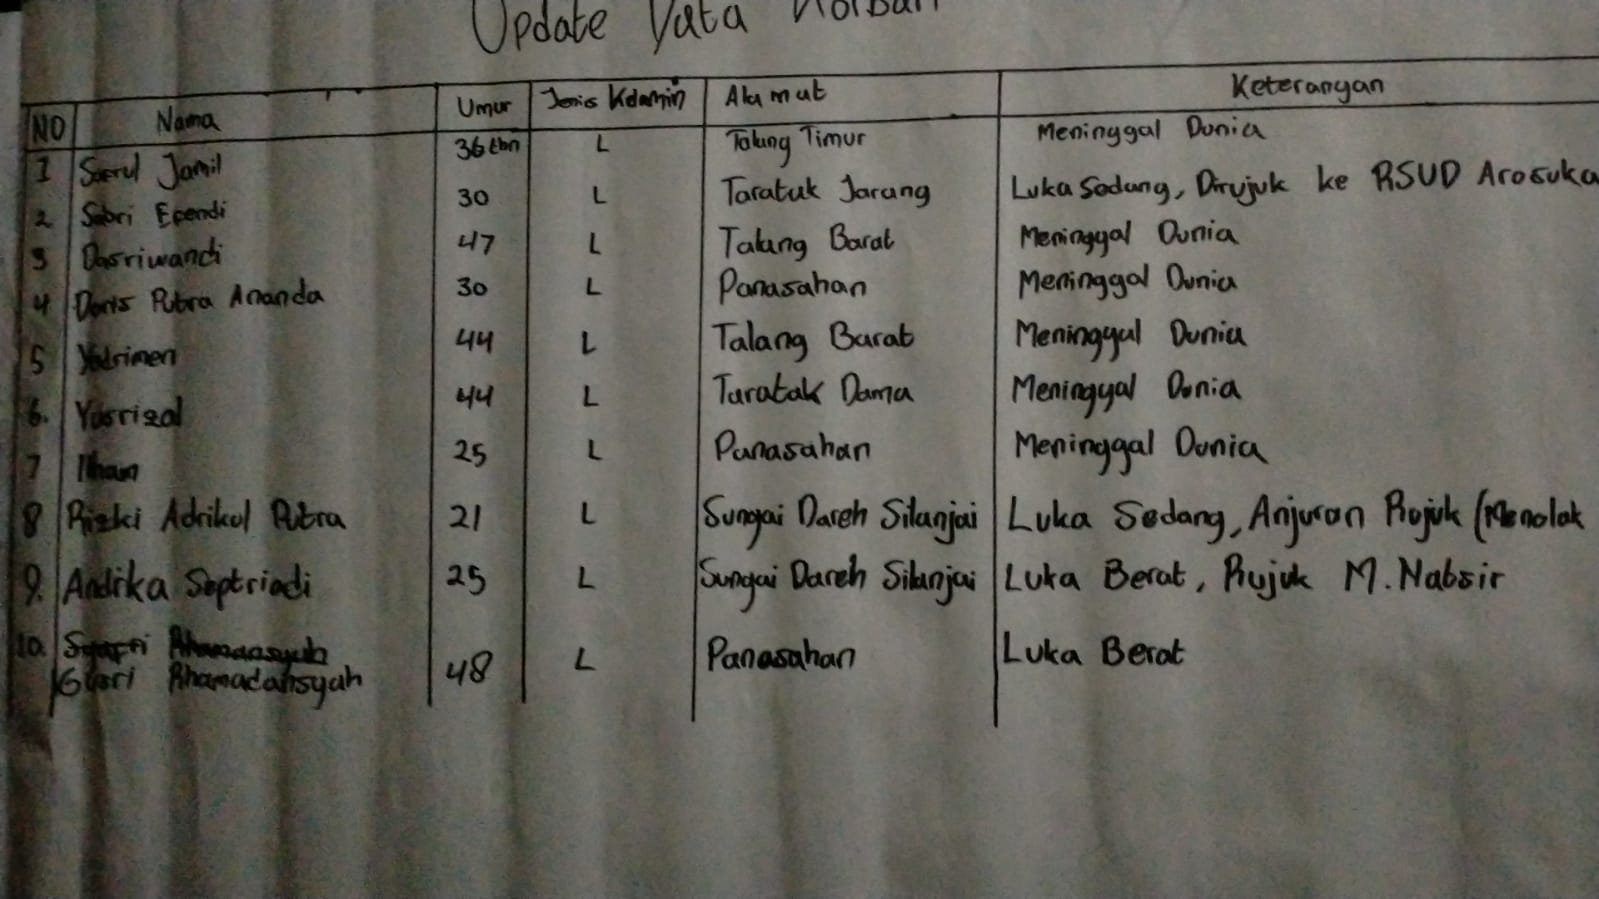 Update Data Korban
NO Nama Umur Jenis Kelamin Alamat Keterangan
1 Saerul Jamil 36 thn L Talang Timur Meninggal Dunia
2 Sabri Efendi 30 L Taratak Jarang Luka Sedang, Dirujuk ke RSUD Arosuka
3 Dasriwandi 47 L Talang Barat Meninggal Dunia
4 Doris Putra Ananda 30 L Panasahan Meninggal Dunia
5 44 L Talang Barat Meninggal Dunia
6. Yusrizal 44 L Taratak Dama Meninggal Dunia
7 Ilham 25 L Panasahan Meninggal Dunia
8 Rizki Adrikol Putra 21 L Sungai Dareh Silanjai Luka Sedang, Anjuran Rujuk (Menolak
9. Andika Septriadi 25 L Sungai Dareh Silanjai Luka Berat, Rujuk M. Nabsir
10. 48 L Panasahan Luka Berat
Rhamadansyah